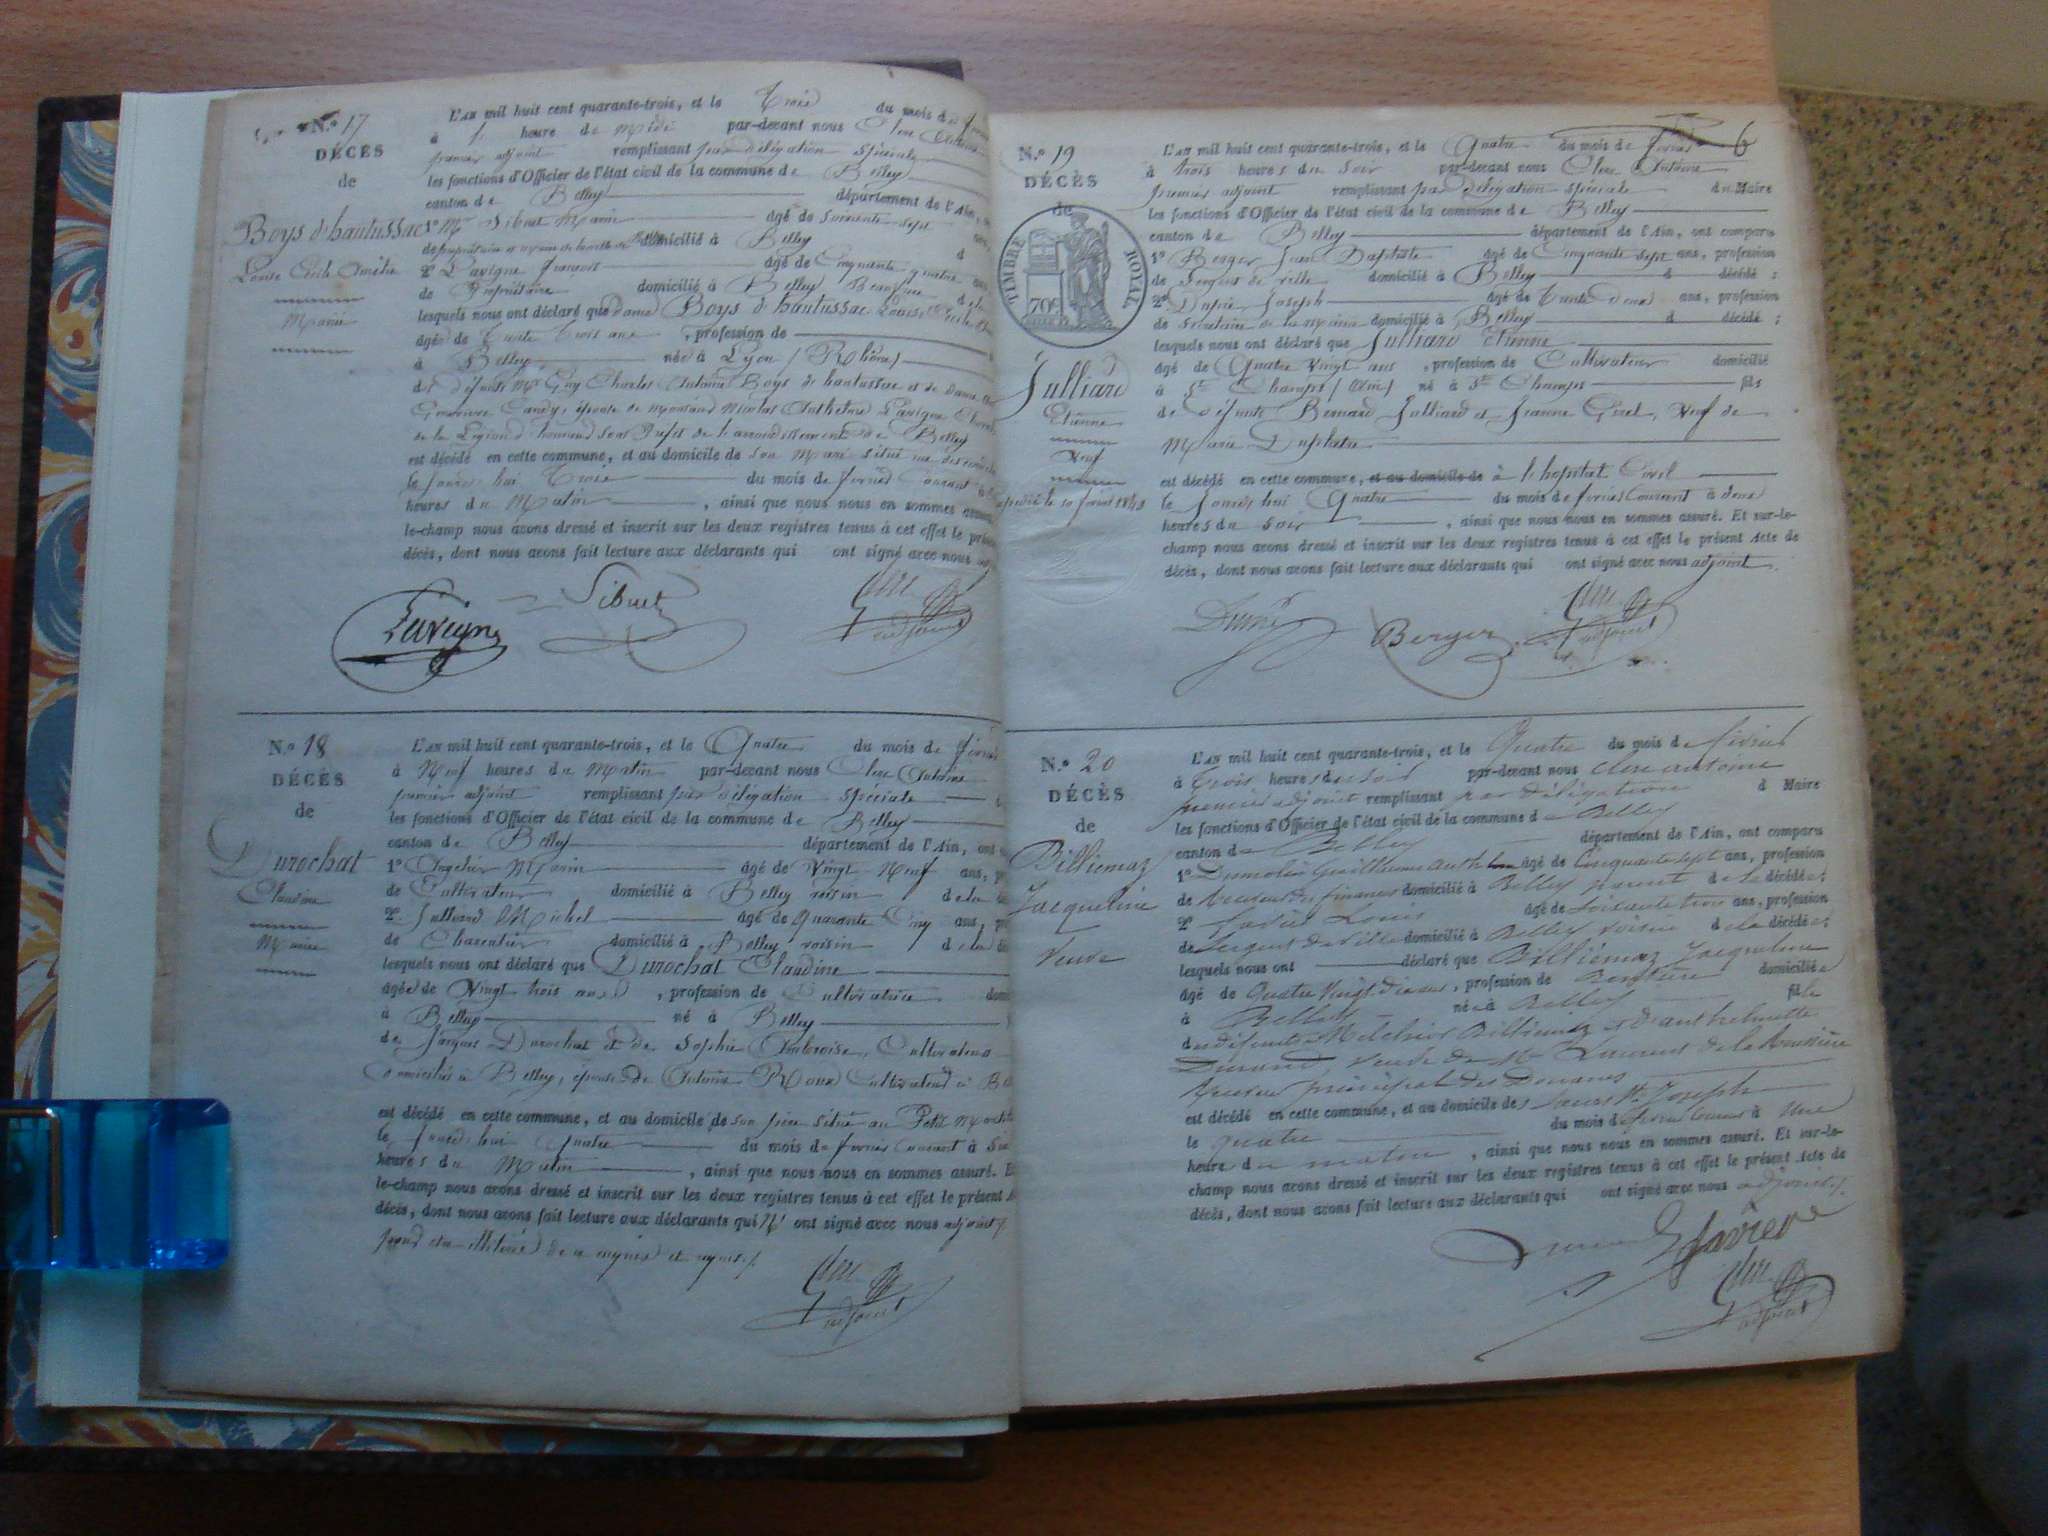 N.º 17
DÉCÈS
de
Boys d'hautussac
Louise Cécile Amélie
Mariée
L'an mil huit cent quarante-trois, et le Trois du mois de
à heure de Midi par-devant nous Clerc
premier adjoint remplissant par délégation spéciale
les fonctions d'Officier de l'état civil de la commune de Belley
canton de Belley département de l'Ain,
1º Mr Sibuet Marin âgé de soixante sept
domicilié à Belley
2º Lavigne François âgé de Cinquante quatre ans
de Propriétaire domicilié à Belley
lesquels nous ont déclaré que dame Boys d'hautussac Louise, Cécile
âgée de Trente Trois ans , profession de
à Belley née à Lyon (Rhône)
de défunt Mr Guy Charles Antoine Boys de hautussac et de Dame
Candy, épouse de Nicolas Anthelme Lavigne
de la Légion d'honneur Sous Préfet de l'arrondissement de Belley
est décédé en cette commune, et au domicile de son Mari situé rue des
le jourd'hui Trois du mois de février Courant à
heures du Matin , ainsi que nous nous en sommes assuré.
le-champ nous avons dressé et inscrit sur les deux registres tenus à cet effet le présent
décès, dont nous avons fait lecture aux déclarants qui ont signé avec nous
Lavigne Sibuet Clerc adjoint
N.º 18
DÉCÈS
de
Durochat
Claudine
Mariée
L'an mil huit cent quarante-trois, et le Quatre du mois de février
à Neuf heures du Matin par-devant nous Clerc Antoine
premier adjoint remplissant par délégation spéciale
les fonctions d'Officier de l'état civil de la commune de Belley
canton de Belley département de l'Ain, ont
1º Marin âgé de Vingt Neuf ans,
de Cultivateur domicilié à Belley voisin de la
2º Julliard Michel âgé de Quarante Cinq ans,
de Charpentier domicilié à Belley voisin de la
lesquels nous ont déclaré que Durochat Claudine
âgée de Vingt trois ans , profession de Cultivatrice
à Belley né à Belley
de Jacques Durochat et de Sophie Ambroise, Cultivateurs
domiciliés à Belley, épouse de Antoine Roux Cultivateur à
est décédé en cette commune, et au domicile de son père situé au Petit
le jourd'hui Quatre du mois de février Courant à
heures du Matin , ainsi que nous nous en sommes assuré.
le-champ nous avons dressé et inscrit sur les deux registres tenus à cet effet le présent
décès, dont nous avons fait lecture aux déclarants qui N' ont signé avec nous adjoint
pour être illitérés de ce enquis et requis
Clerc adjoint
6
N.º 19
DÉCÈS
de
TIMBRE ROYAL
70c
Julliard
Etienne
Veuf
L'an mil huit cent quarante-trois, et le Quatre du mois de février
à trois heures du soir par-devant nous Clerc Antoine
premier adjoint remplissant par délégation spéciale du Maire
les fonctions d'Officier de l'état civil de la commune de Belley
canton de Belley département de l'Ain, ont comparu
1º Berger Jean Baptiste âgé de Cinquante sept ans, profession
de Sergent de ville domicilié à Belley d décédé ;
2º Joseph âgé de Trente deux ans, profession
de Secrétaire de la Mairie domicilié à Belley d décédé ;
lesquels nous ont déclaré que Julliard Etienne
âgé de Quatre Vingt ans , profession de Cultivateur domicilié
à St Champs (Ain) né à St Champs fils
de défunts Bernard Julliard et Jeanne Veuf de
Marie
est décédé en cette commune, et au domicile de à l'hopital Civil
le jourd'hui Quatre du mois de février Courant à deux
heures du soir , ainsi que nous nous en sommes assuré. Et sur-le-
champ nous avons dressé et inscrit sur les deux registres tenus à cet effet le présent Acte de
décès, dont nous avons fait lecture aux déclarants qui ont signé avec nous adjoint.
Berger Clerc adjoint
N.º 20
DÉCÈS
de
Billiemaz
Jacqueline
Veuve
L'an mil huit cent quarante-trois, et le Quatre du mois de février
à Trois heures du soir par-devant nous Clerc Antoine
premier adjoint remplissant par délégation d Maire
les fonctions d'Officier de l'état civil de la commune de Belley
canton de Belley département de l'Ain, ont comparu
1º Dumolin Guillaume Anthelme âgé de Cinquante sept ans, profession
de domicilié à Belley parent de la décédée ;
2º Louis âgé de soixante trois ans, profession
de Sergent de ville domicilié à Belley voisin de la décédée ;
lesquels nous ont déclaré que Billiemaz Jacqueline
âgé de Quatre Vingt deux ans, profession de Rentière domiciliée
à Belley née à Belley fille
des défunts Melchior Billiemaz et d'anthelmette
Durand, Veuve de Mr Laurent de la
principal des Douanes
est décédé en cette commune, et au domicile des Sœurs St Joseph
le quatre du mois de février courant à une
heure du matin , ainsi que nous nous en sommes assuré. Et sur-le-
champ nous avons dressé et inscrit sur les deux registres tenus à cet effet le présent Acte de
décès, dont nous avons fait lecture aux déclarants qui ont signé avec nous adjoint
Clerc adjoint